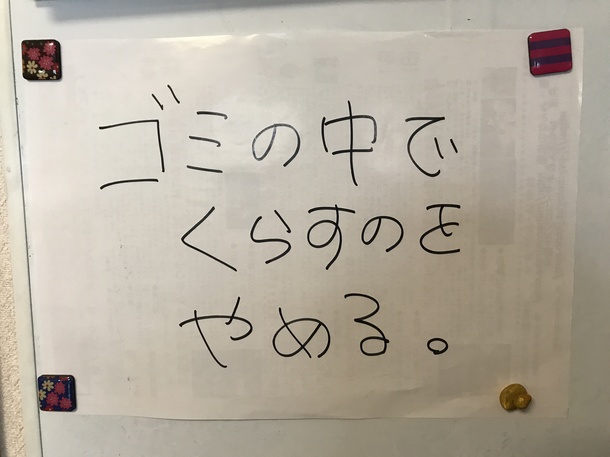 ゴミの中で
くらすのを
やめる。